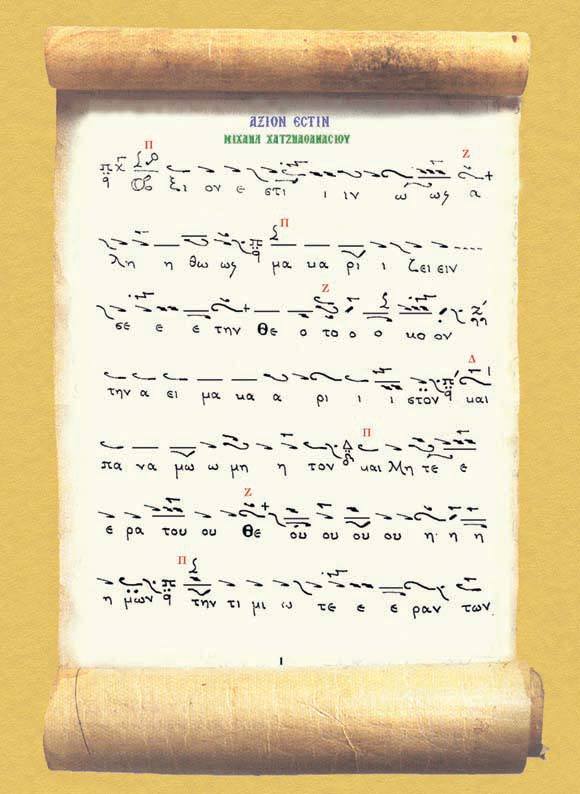 ΑΞΙΟΝ ΕϹΤΙΝ
ΜΙΧΑΗΛ ΧΑΤΖΗΑΘΑΝΑϹΙΟΥ
Π Ζ
ξι ον ε στι ι ιν ω ως α
Π
λη η θω ως μα κα ρι ι ζει ειν
Ζ
σε ε ε την Θε ο το ο ο κο ον
Δ
την α ει μα κα α ρι ι ι στον και
Π
πα να μω ω μη η τον και Μη τε ε
Ζ
ε ρα του ου Θε ου ου ου ου η η η
Π
η μων την τι μι ω τε ε ε ραν των
1